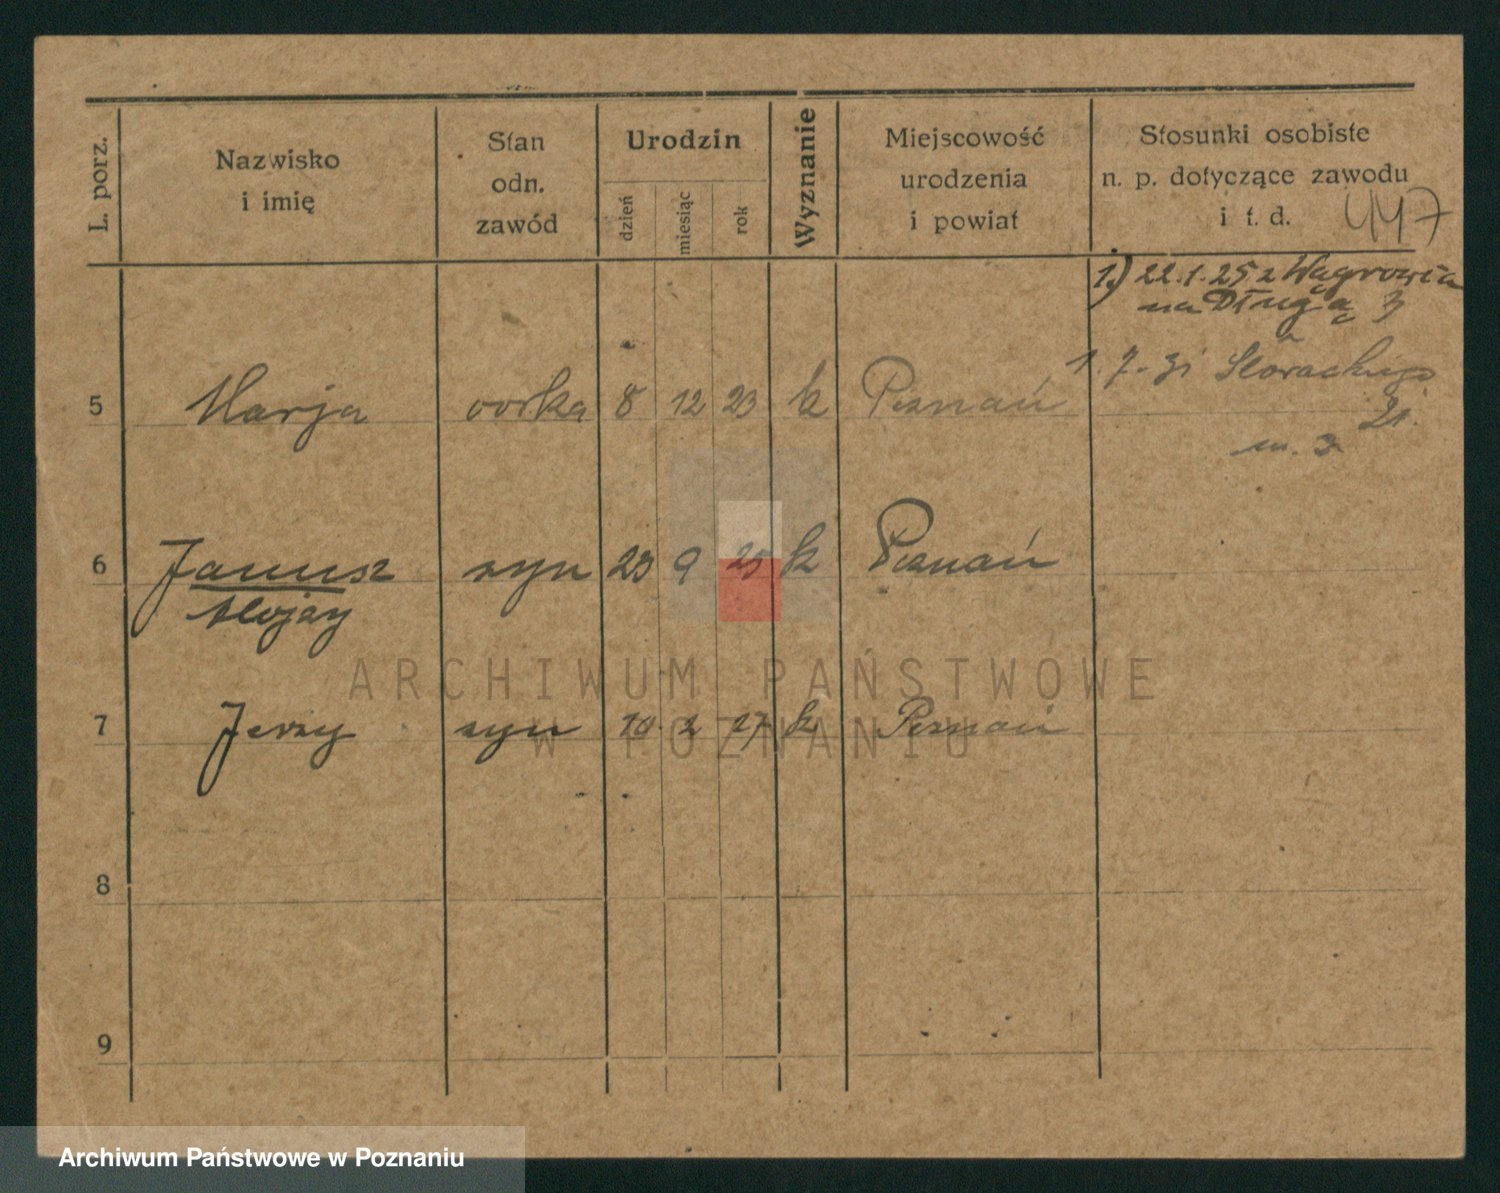 L. porz.
Nazwisko
i imię
Stan
odn.
zawód
Urodzin
dzień
miesiąc
rok
Wyznanie
Miejscowość
urodzenia
i powiat
Stosunki osobiste
n. p. dotyczące zawodu
i t. d.
447
1.) 22.1.25 z Wągrowca
na Długą 3
1.7.31
21.
m. 3
5 Marja córka 8 12 23 k Poznań
6 Janusz syn 23 9 25 k Poznań
Alojzy
7 Jerzy syn 10 2 27 k Poznań
8
9
ARCHIWUM PAŃSTWOWE
W POZNANIU
Archiwum Państwowe w Poznaniu